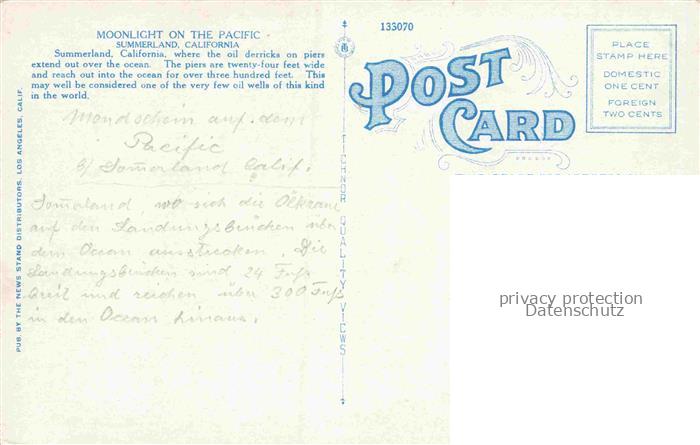 MOONLIGHT ON THE PACIFIC
SUMMERLAND, CALIFORNIA
Summerland, California, where the oil derricks on piers
extend out over the ocean. The piers are twenty-four feet wide
and reach out into the ocean for over three hundred feet. This
may well be considered one of the very few oil wells of this kind
in the world.
Mondschein auf dem
Pacific
b/ Somerland Calif.
Somerland, wo sich die Ölkrane
auf den Landungsbrücken über
dem Ocean ausstrecken. Die
Landungsbrücken sind 24 Fuß
breit und reichen über 300 Fuß
in den Ocean hinaus.
PUB. BY THE NEWS STAND DISTRIBUTORS, LOS ANGELES, CALIF.
TICHNOR QUALITY VIEWS
133070
POST
CARD
PLACE
STAMP HERE
DOMESTIC
ONE CENT
FOREIGN
TWO CENTS
privacy protection
Datenschutz